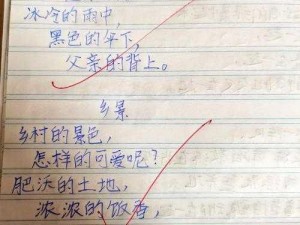 冰冷的雨中，
黑色的伞下，
父亲的背上。
乡景
乡村的景色，
怎样的可爱呢？
肥沃的土地，
浓浓的饭香，